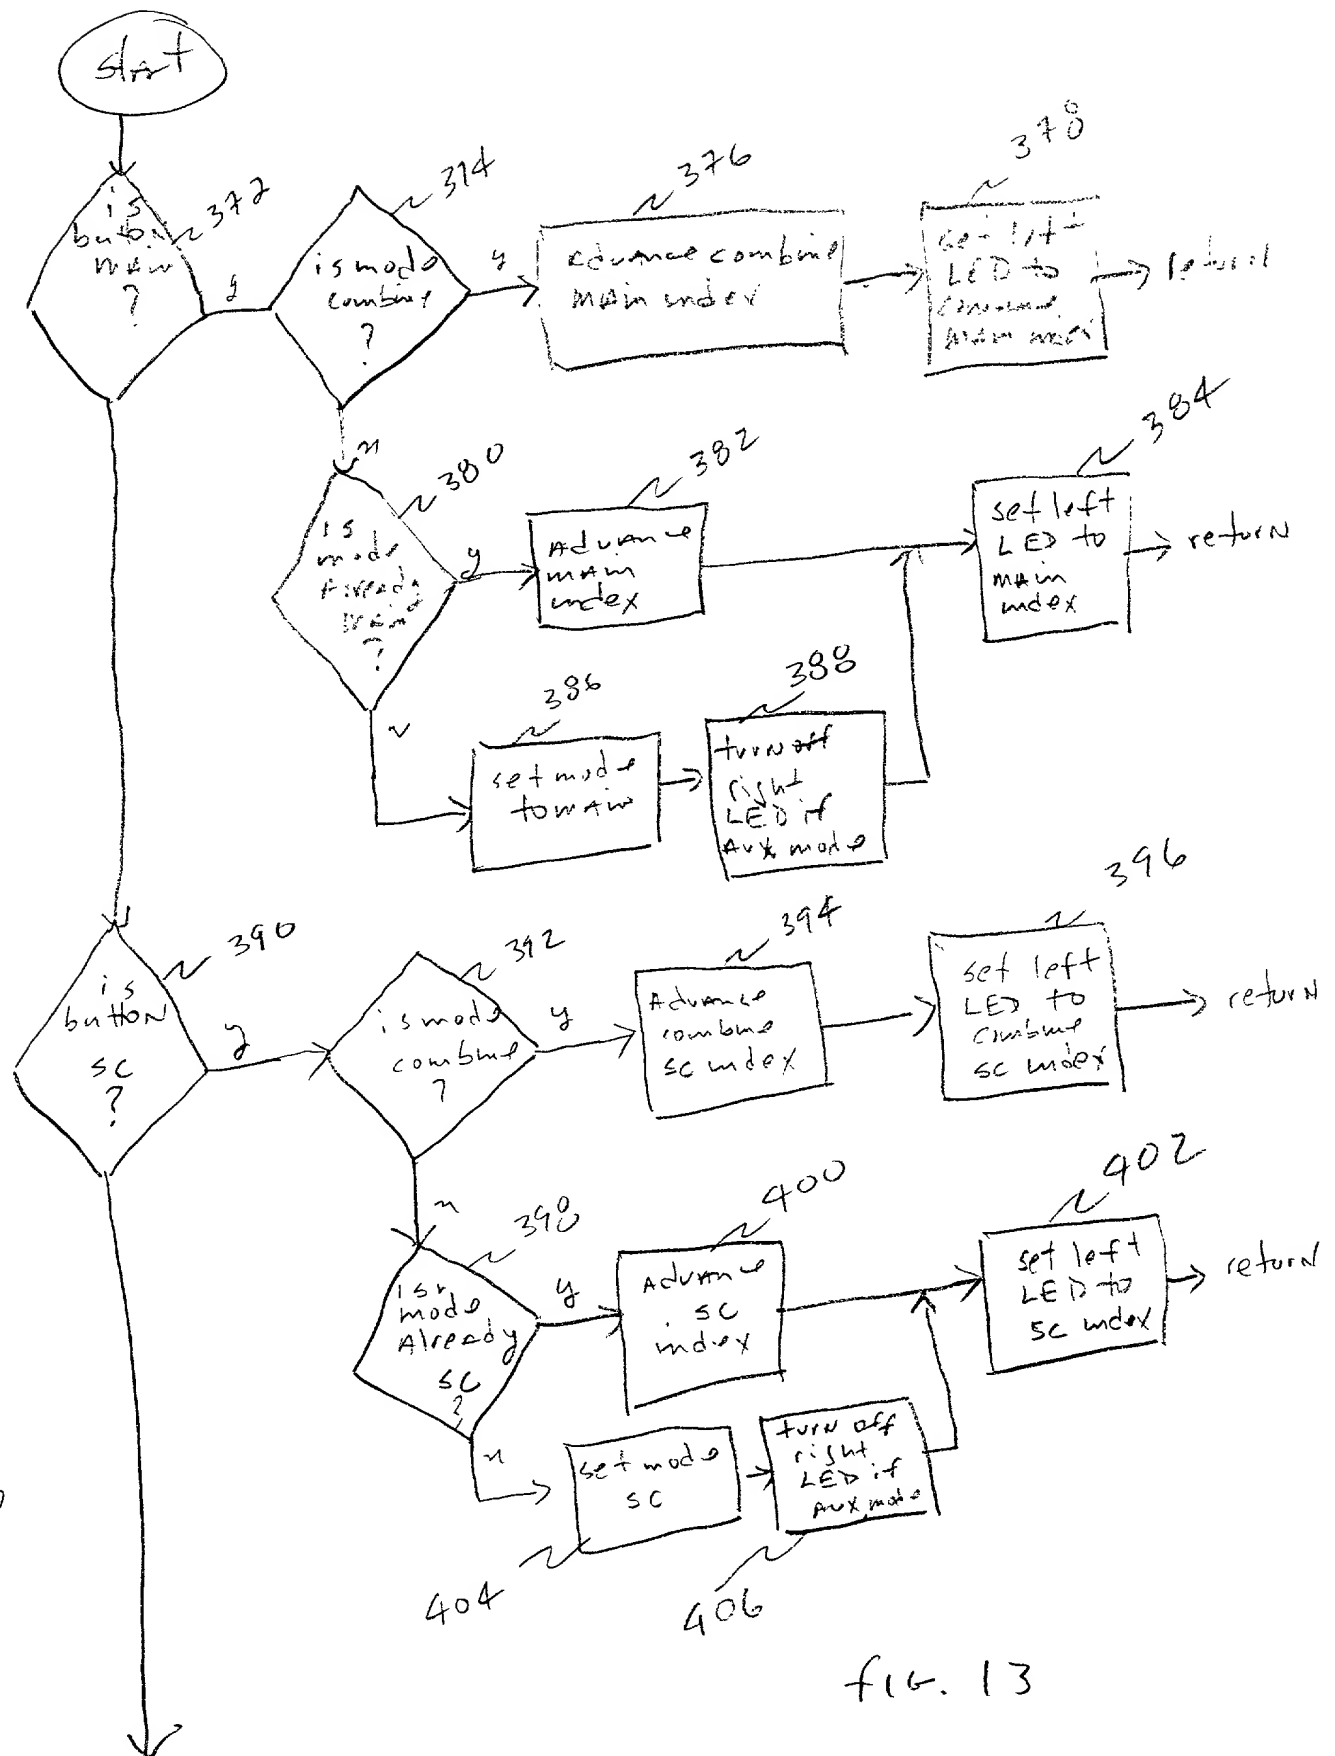 start
is
button
main
?
372
y
374
is mode
combine
?
y
376
Advance combine
main index
378
set left
LED to
combine
main index
return
n
380
is
mode
Already
main
?
y
382
Advance
main
index
384
set left
LED to
main
index
return
n
386
set mode
to main
388
turn off
right
LED if
Aux mode
390
is
button
SC
?
y
392
is mode
combine
?
y
394
Advance
combine
SC index
396
set left
LED to
combine
SC index
return
n
398
is
mode
Already
SC
?
y
400
Advance
SC
index
402
set left
LED to
SC index
return
n
set mode
SC
404
turn off
right
LED if
Aux mode
406
fig. 13